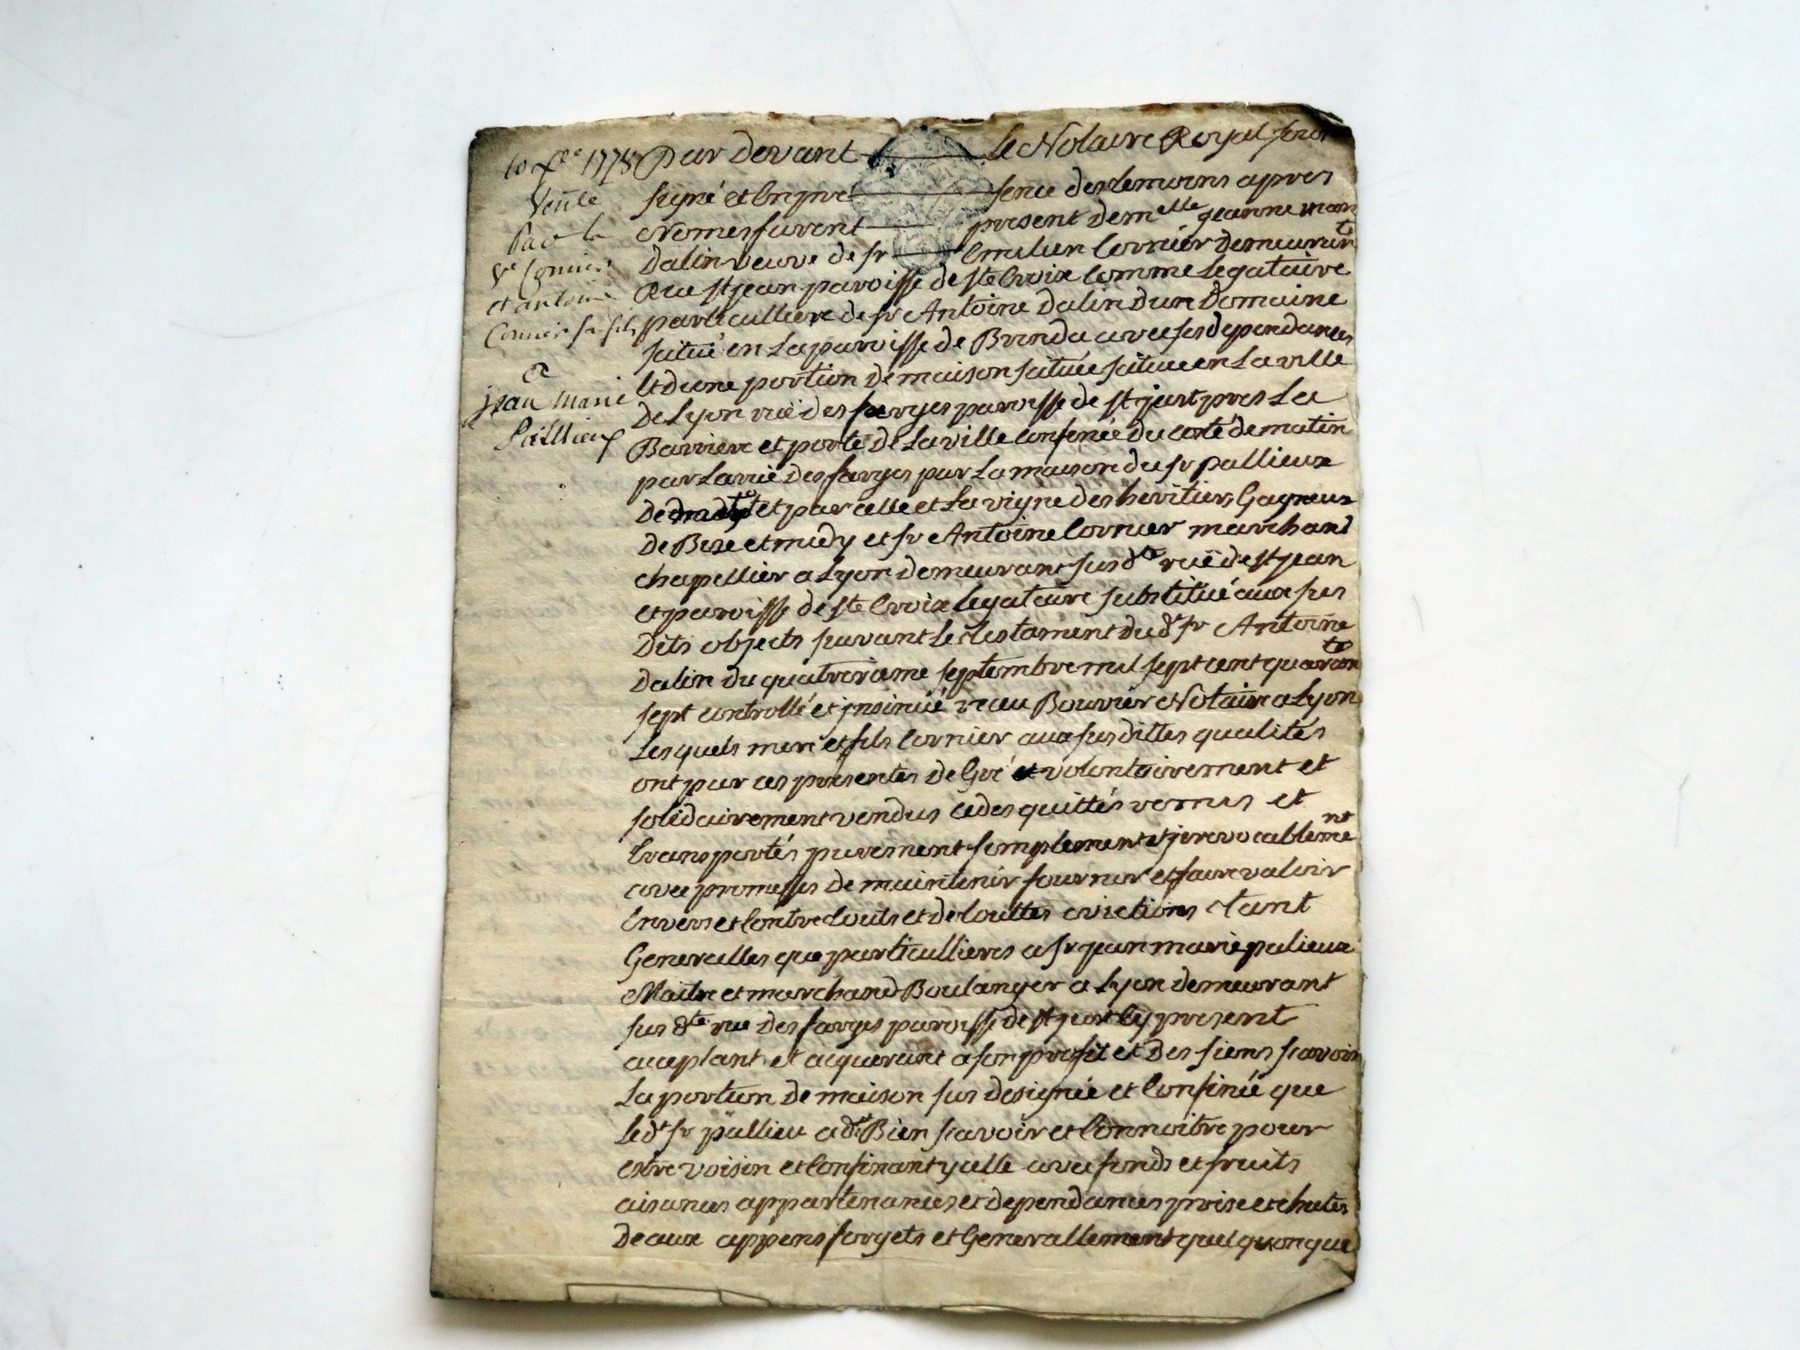 10 1775
Vente
Par la
Ve Cornier
et antoine
Cornier son fils
a
jean marie
Pallieux
Par Devant le Notaire Royal
signé et en pre sence des temoins apres
Nomes furent present demelle jeanne
Dalin veuve de sr Cornier demeurante
Rue st jean paroisse de ste Croix comme Legataire
particulliere de sr Antoine Dalin dun Domaine
situé en la paroisse de Brinda avec ses dependances
et dune portion de maison située située en La ville
de Lyon ruë des farges paroisse de st just pres La
Barriere et porte de La ville confinée du coté de matin
par La ruë des farges par La maison du sr pallieux
de et par celle et La vigne des heritiers Gagneux
de Bize et midy et sr Antoine Cornier marchand
chapellier a Lyon demeurant susdte ruë de st jean
et paroisse de ste Croix Legataire substitué aux sus
Dits objects suivant Le testament dudt sr Antoine
Dalin du quatrieme septembre mil sept cent quarante
sept controllé et jnsinüé reçu Bouvier Notaire a Lyon
Lesquels mere et fils Cornier aux susdittes qualités
ont par ces presentes de Gré et volontairement et
solidairement vendus cedes quittés remis et
transportés purement simplement et jrrevocablement
avec promesses de maintenir fournir et faire valoir
Envers et Contre touts et de touttes evictions tant
Generalles que particullieres a sr jean marie palieux
Maitre et marchand Boulanger a Lyon demeurant
susdte rue des farges paroisse de st just cy present
acceptant et acquerant a son profit et des siens scavoir
La portion de maison sus designée et Confinée que
Ledt sr pallieu a dit Bien scavoir et Connoitre pour
estre voisin et Confinant ycelle avec fonds et fruits
aisances appartenances et dependances prise et chutes
deaux appens forgets et Generallement quelquonque